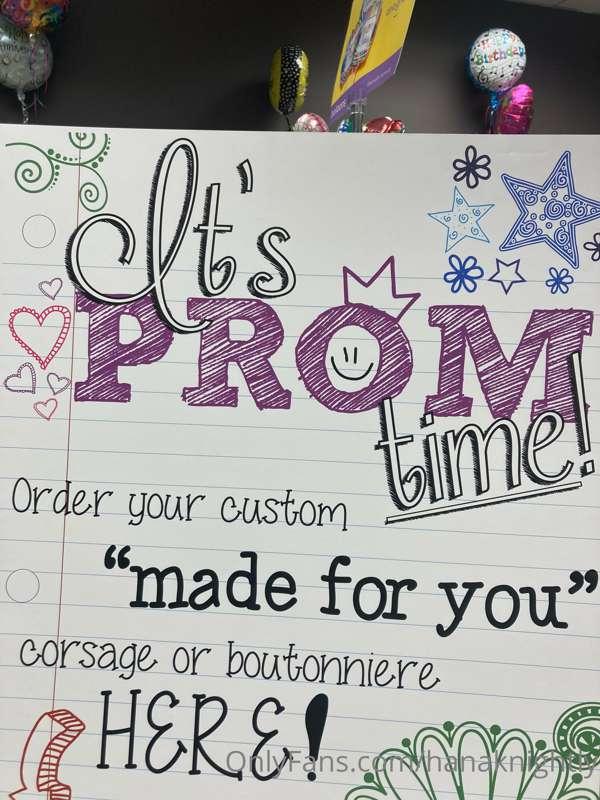 It's
PROM
time!
Order your custom
“made for you”
corsage or boutonniere
HERE!
OnlyFans.com/hanaknightly
Happy
Birthday